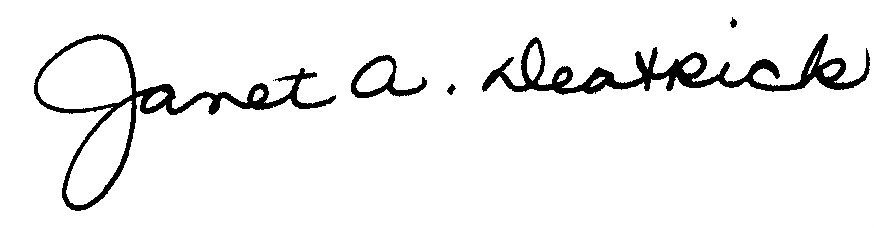 Janet A. Deatrick